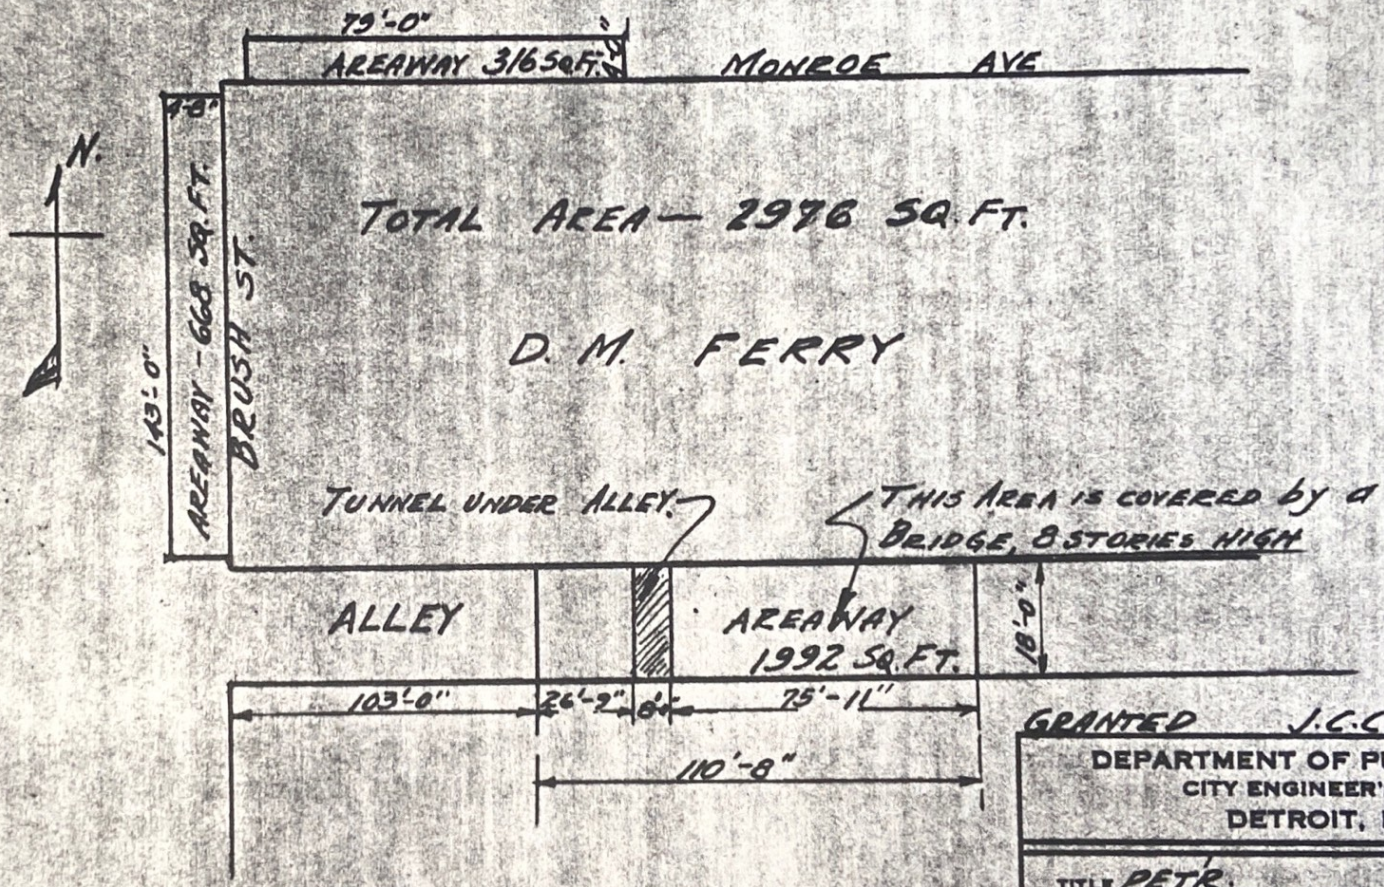 79'-0"
AREAWAY 316 SQ.FT. 4'-0"
MONROE AVE
4'-8"
N.
AREAWAY - 668 SQ.FT.
143'-0"
BRUSH ST.
TOTAL AREA — 2976 SQ. FT.
D. M. FERRY
TUNNEL UNDER ALLEY.
THIS AREA IS COVERED by a
BRIDGE, 8 STORIES HIGH
ALLEY
AREAWAY
1992 SQ. FT.
18'-0"
103'-0" 26'-9" 8' 75'-11"
110'-8"
GRANTED J.C.C
DEPARTMENT OF PU
CITY ENGINEER'
DETROIT,
TITLE PET'R.